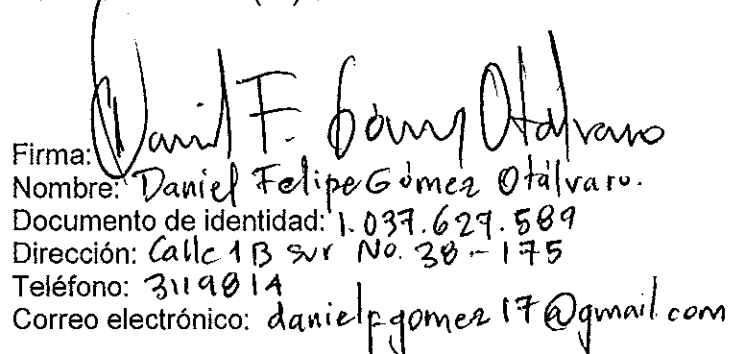 Firma: Daniel F. Gómez Otálvaro
Nombre: Daniel Felipe Gómez Otálvaro.
Documento de identidad: 1.037.627.589
Dirección: Calle 1B sur No. 38-175
Teléfono: 3119814
Correo electrónico: danielfgomez17@gmail.com